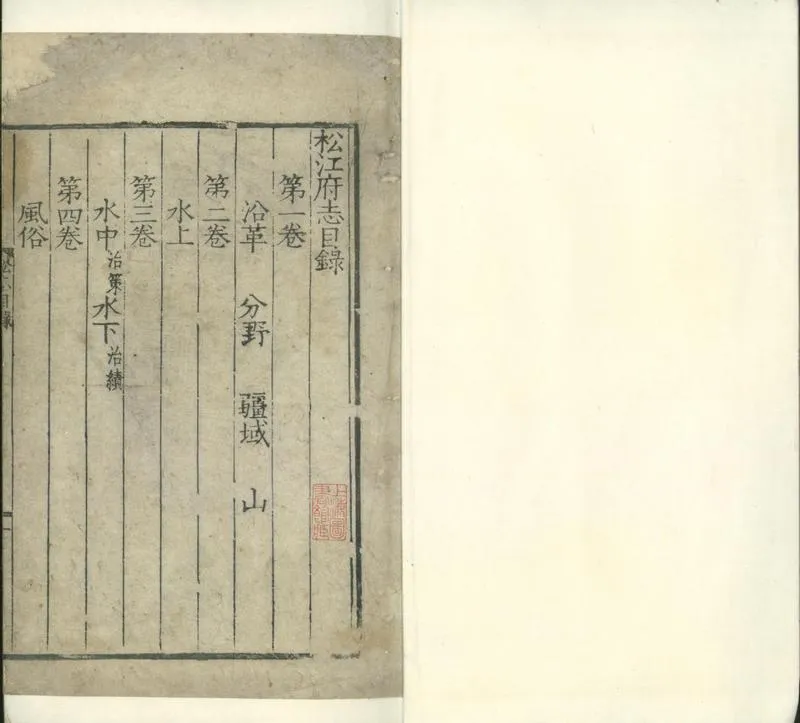 松江府志目錄
第一卷
沿革 分野 疆域 山
第二卷
水上
第三卷
水中治策水下治績
第四卷
風俗
上海圖書館藏